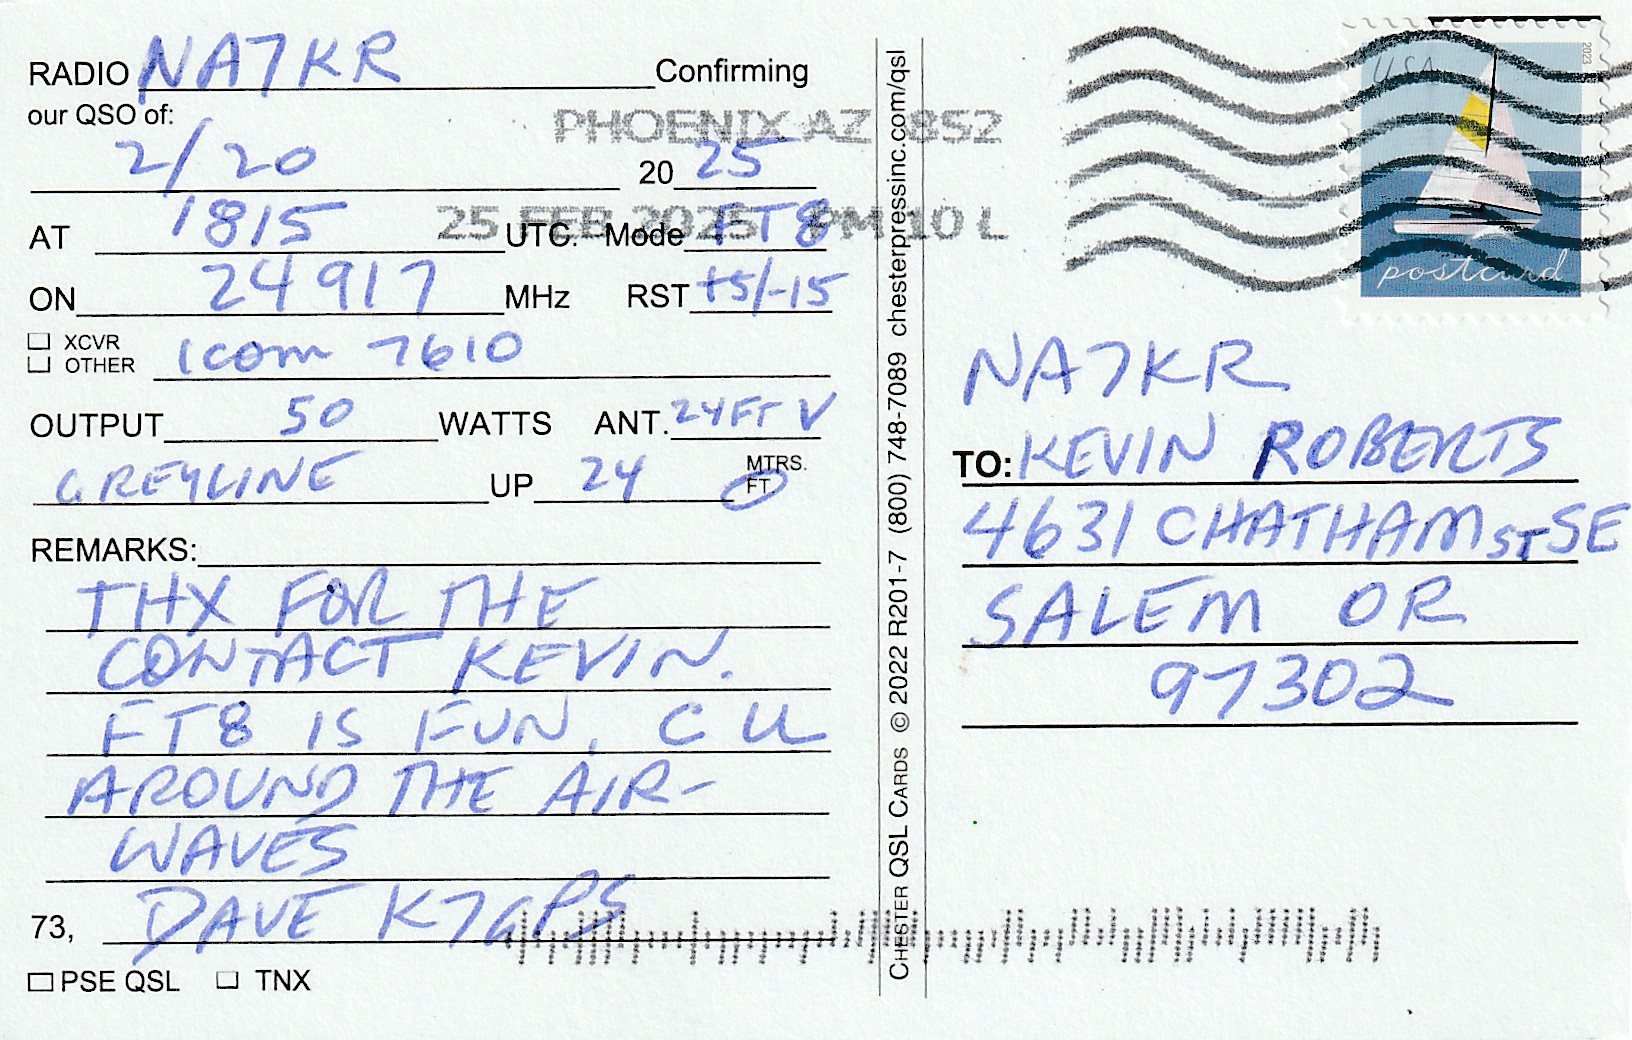 RADIO NA7KR Confirming
our QSO of:
2/20 2025
AT 1815 UTC. Mode FT8
ON 24 917 MHz RST +5/-15
XCVR
OTHER Icom 7610
OUTPUT 50 WATTS ANT. 24FT V
GREYLINE UP 24 MTRS.
FT
REMARKS:
THX FOR THE
CONTACT KEVIN.
FT8 IS FUN. C U
AROUND THE AIR-
WAVES
73, DAVE K7GPS
PSE QSL TNX
PHOENIX AZ 852
25 FEB 2025 PM 10 L
CHESTER QSL CARDS © 2022 R201-7 (800) 748-7089 chesterpressinc.com/qsl
USA
2023
postcard
NA7KR
TO: KEVIN ROBERTS
4631 CHATHAM ST SE
SALEM OR
97302